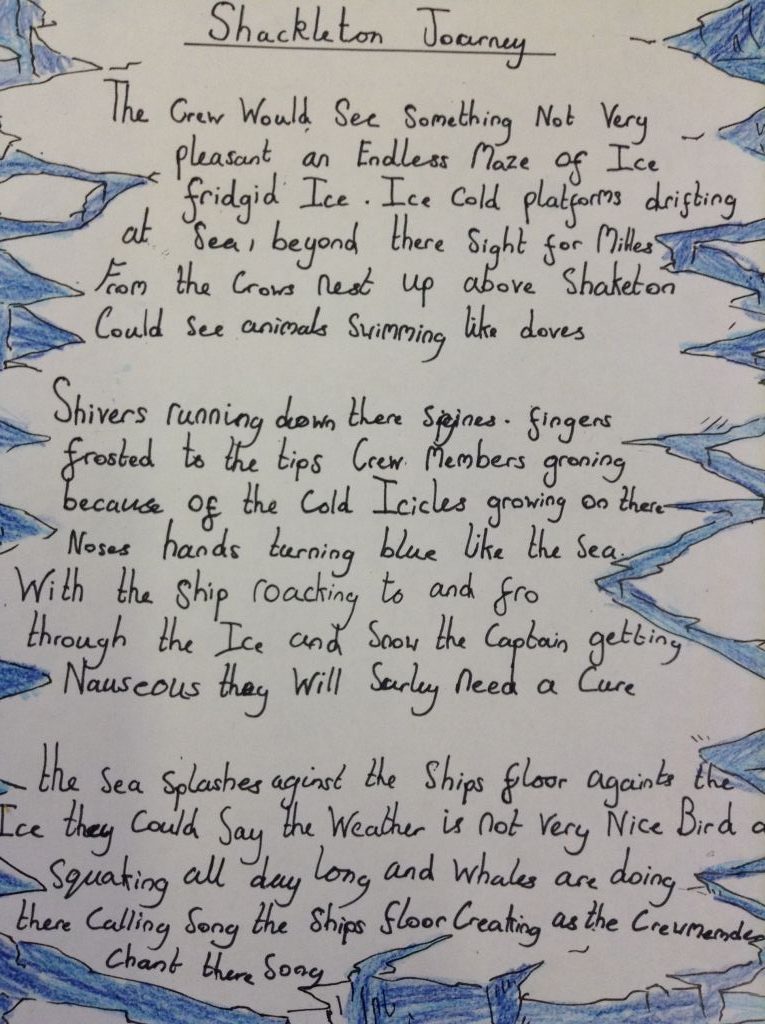 Shackleton Joarney
The Crew Would See Something Not Very
pleasant an Endless Maze of Ice
fridgid Ice. Ice Cold platforms drifting
at Sea, beyond there Sight for Milles
From the Crows nest up above Shaketon
Could See animals Swimming like doves
Shivers running down there Spines. fingers
frosted to the tips Crew Members groning
because of the Cold Icicles growing on there
Noses hands turning blue like the Sea.
With the Ship roacking to and fro
through the Ice and Snow the Captain getting
Nauseous they Will Surley need a Cure
the Sea Splashes aginst the Ships floor againts the
Ice they Could Say the Weather is not Very Nice Bird a
Squaking all day long and Whales are doing
there Calling Song the Ships floor Creaking as the Crewmemdes
Chant there Song